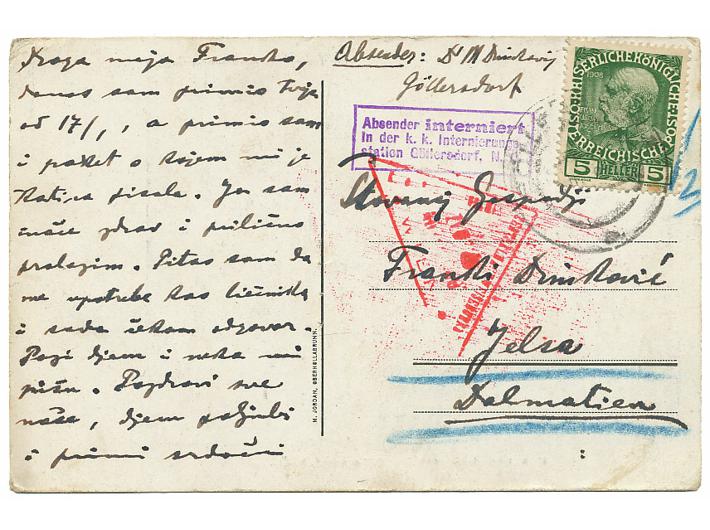 Draga moja Franko,
danas sam primio tvoju
od 17/, , a primio sam
i paket o kojem mi je
Katica pisala. Ja sam
inače zdrav i prilično
prolazim. Pitao sam da
me upotrebe kao liečnika
i sada čekam odgovor.
Pazi djecu i neka mi
pišu. Pozdravi sve
naše, djecu poljubi
i primi srdačni
M. JORDAN, OBERHOLLABRUNN.
Absender: Dr Drinković
Göllersdorf
Absender interniert
in der k. k. Internierungs-
station Göllersdorf, N.
KAISERLICHE KÖNIGLICHE
ÖSTERREICHISCHE POST
1908
5 HELLER 5
Gospodji
Franki Drinković
Jelsa
Dalmatien